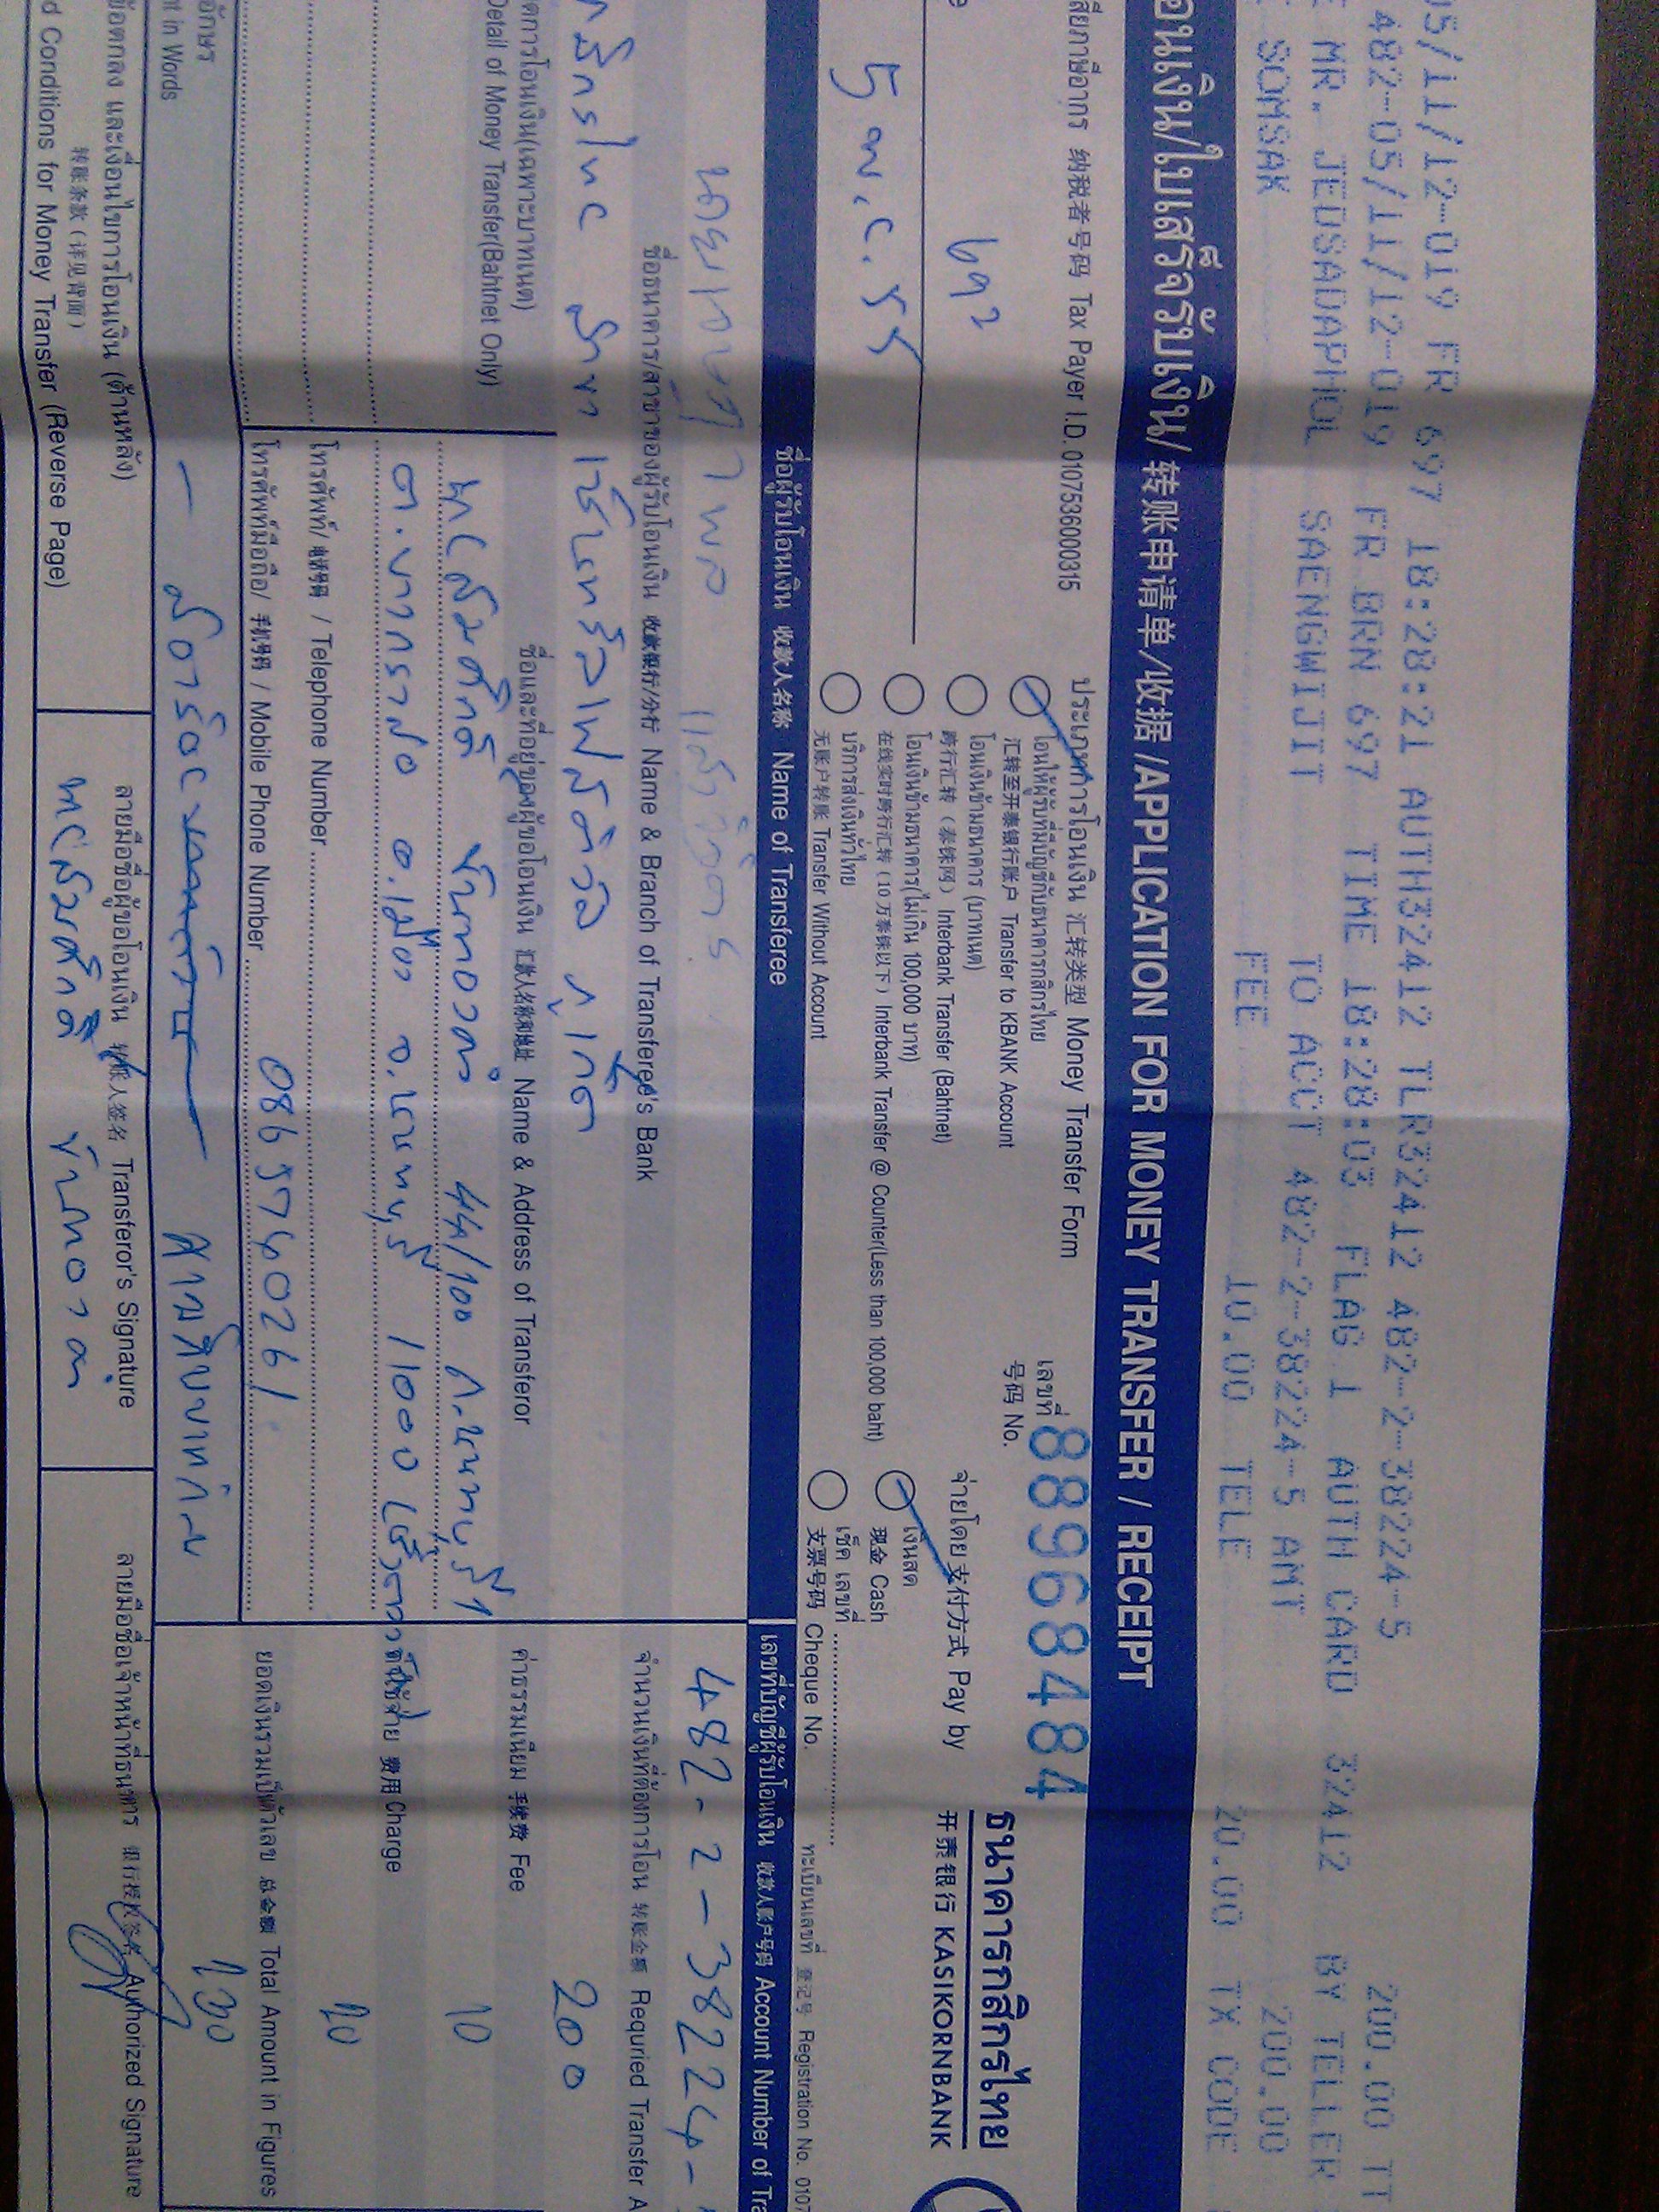 05/11/12-019 FR 697 18:28:21 AUTH32412 TLR32412 482-2-38224-5 200.00 TT
482-05/11/12-019 FR BRN 697 TIME 18:28:03 FLAG 1 AUTH CARD 32412 BY TELLER
MR. JEDSADAPHOL SAENGWIJIT TO ACCT 482-2-38224-5 AMT 200.00
SOMSAK FEE 10.00 TELE 20.00 TX CODE
อนเงิน/ใบเสร็จรับเงิน/转账申请单/收据/APPLICATION FOR MONEY TRANSFER / RECEIPT
สียภาษีอากร 纳税者号码 Tax Payer I.D. 0107536000315
697
5 พ.ย. 55
ประเภทการโอนเงิน 汇转类型 Money Transfer Form
โอนให้ผู้รับที่มีบัญชีกับธนาคารกสิกรไทย
汇转至开泰银行账户 Transfer to KBANK Account
โอนเงินข้ามธนาคาร (บาทเนต)
跨行汇转（泰铢网）Interbank Transfer (Bahtnet)
โอนเงินข้ามธนาคาร(ไม่เกิน 100,000 บาท)
在线实时跨行汇转（10 万泰铢以下）Interbank Transfer @ Counter(Less than 100,000 baht)
บริการส่งเงินทั่วไทย
无账户转账 Transfer Without Account
เลขที่
号码 No. 88968484
จ่ายโดย 支付方式 Pay by
เงินสด
现金 Cash
เช็ค เลขที่
支票号码 Cheque No.
ธนาคารกสิกรไทย
开泰银行 KASIKORNBANK
ทะเบียนเลขที่ 登记号 Registration No. 0107
ชื่อผู้รับโอนเงิน 收款人名称 Name of Transferee
เลขที่บัญชีผู้รับโอนเงิน 收款人账户号码 Account Number of Tra
482-2-38224-
ชื่อธนาคาร/สาขาของผู้รับโอนเงิน 收款银行/分行 Name & Branch of Transferee's Bank
จำนวนเงินที่ต้องการโอน 转账金额 Requried Transfer A
กสิกรไทย สาขา เซ็นทรัลเฟสติวัล ภูเก็ต
200
ดการโอนเงิน(เฉพาะบาทเนต)
Detail of Money Transfer(Bahtnet Only)
ชื่อและที่อยู่ของผู้ขอโอนเงิน 汇款人名称和地址 Name & Address of Transferor
ค่าธรรมเนียม 手续费 Fee
สมศักดิ์ 44/100 ถ.นนทบุรี 1
10
ต.บางกระสอ อ.เมือง จ.นนทบุรี 11000
ค่าใช้จ่าย 费用 Charge
โทรศัพท์/ 电话号码 / Telephone Number
20
โทรศัพท์มือถือ/ 手机号码 / Mobile Phone Number 0865760261
ยอดเงินรวมเป็นตัวเลข 总金额 Total Amount in Figures
อักษร
t in Words
- สองร้อย สามสิบบาทถ้วน
230
ข้อตกลง และเงื่อนไขการโอนเงิน (ด้านหลัง)
转账条款（详见背面）
d Conditions for Money Transfer (Reverse Page)
ลายมือชื่อผู้ขอโอนเงิน 转账人签名 Transferor's Signature
สมศักดิ์
ลายมือชื่อเจ้าหน้าที่ธนาคาร 银行授权签名 Authorized Signature